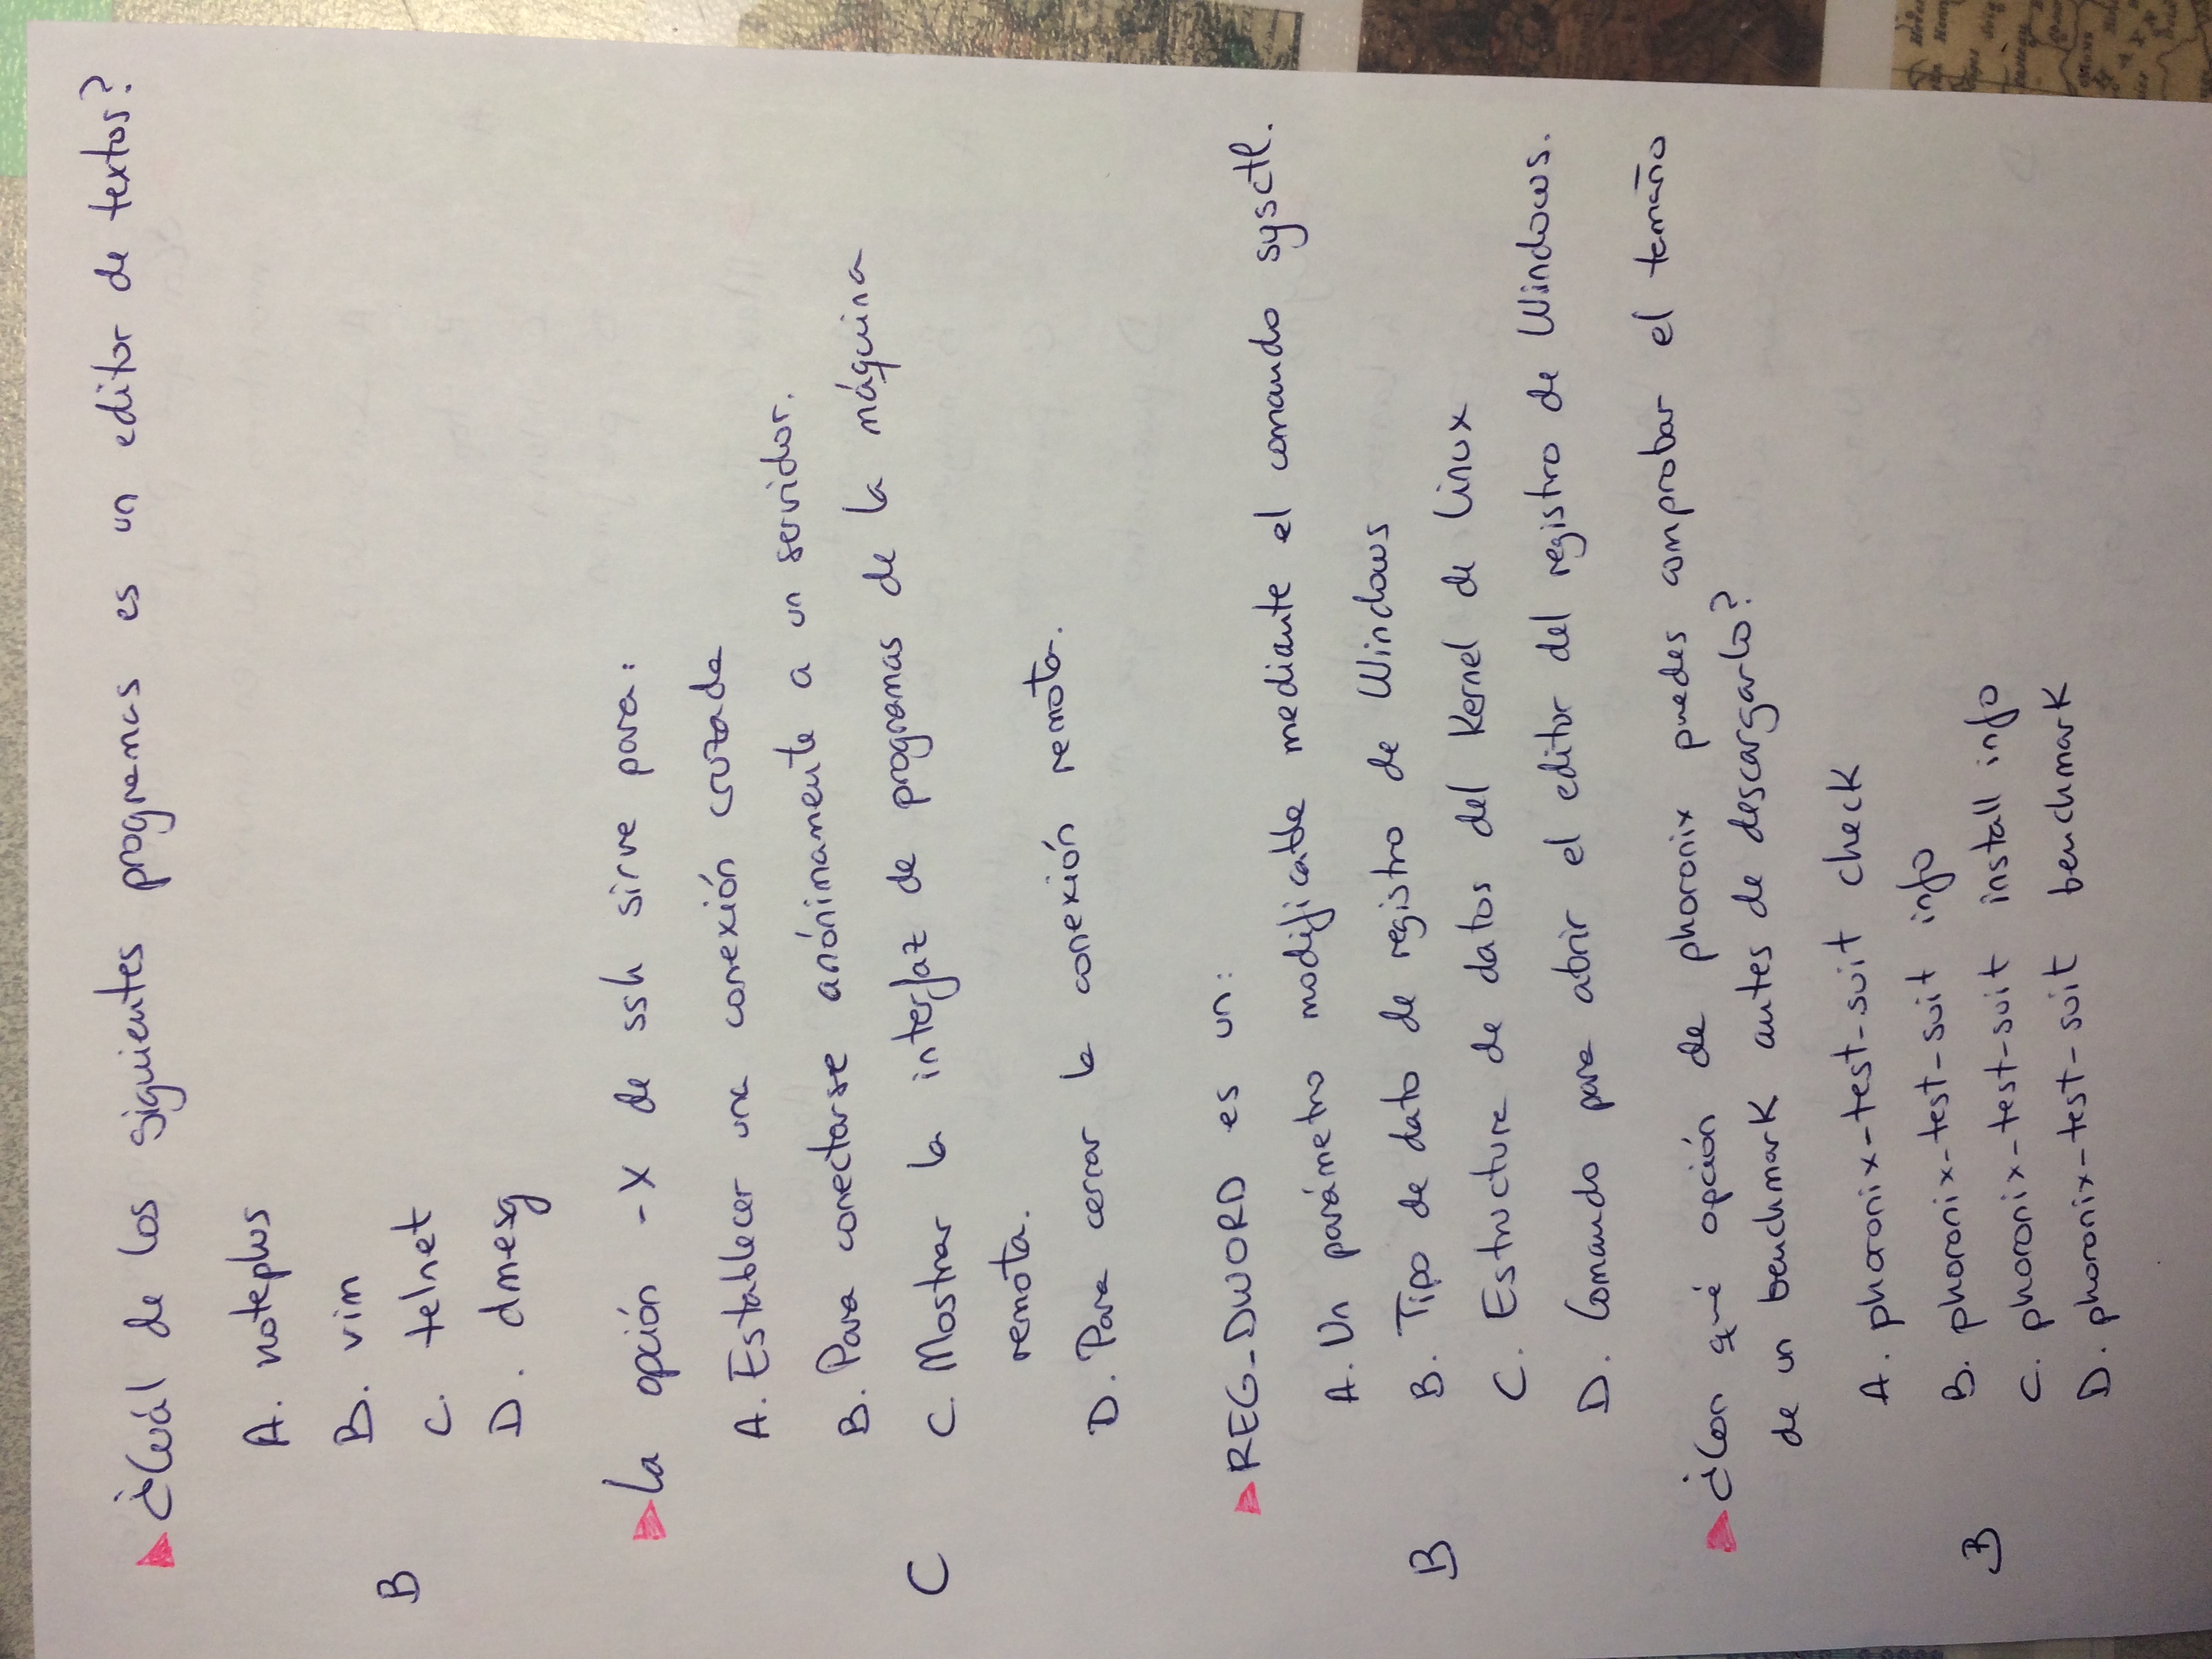 ¿Cuál de los siguientes programas es un editor de textos?
A. noteplus
B. vim
B
C. telnet
D. dmesg
La opción -X de ssh sirve para:
A. Establecer una conexión cruzada
B. Para conectarse anónimamente a un servidor.
C
C. Mostrar la interfaz de programas de la máquina
remota.
D. Para cerrar la conexión remota.
REG_DWORD es un:
A. Un parámetro modificable mediante el comando sysctl.
B
B. Tipo de dato de registro de Windows
C. Estructura de datos del Kernel de Linux
D. Comando para abrir el editor del registro de Windows.
¿Con qué opción de phoronix puedes comprobar el tamaño
de un benchmark antes de descargarlo?
A. phoronix-test-suit check
B. phoronix-test-suit info
B
C. phoronix-test-suit install info
D. phoronix-test-suit benchmark